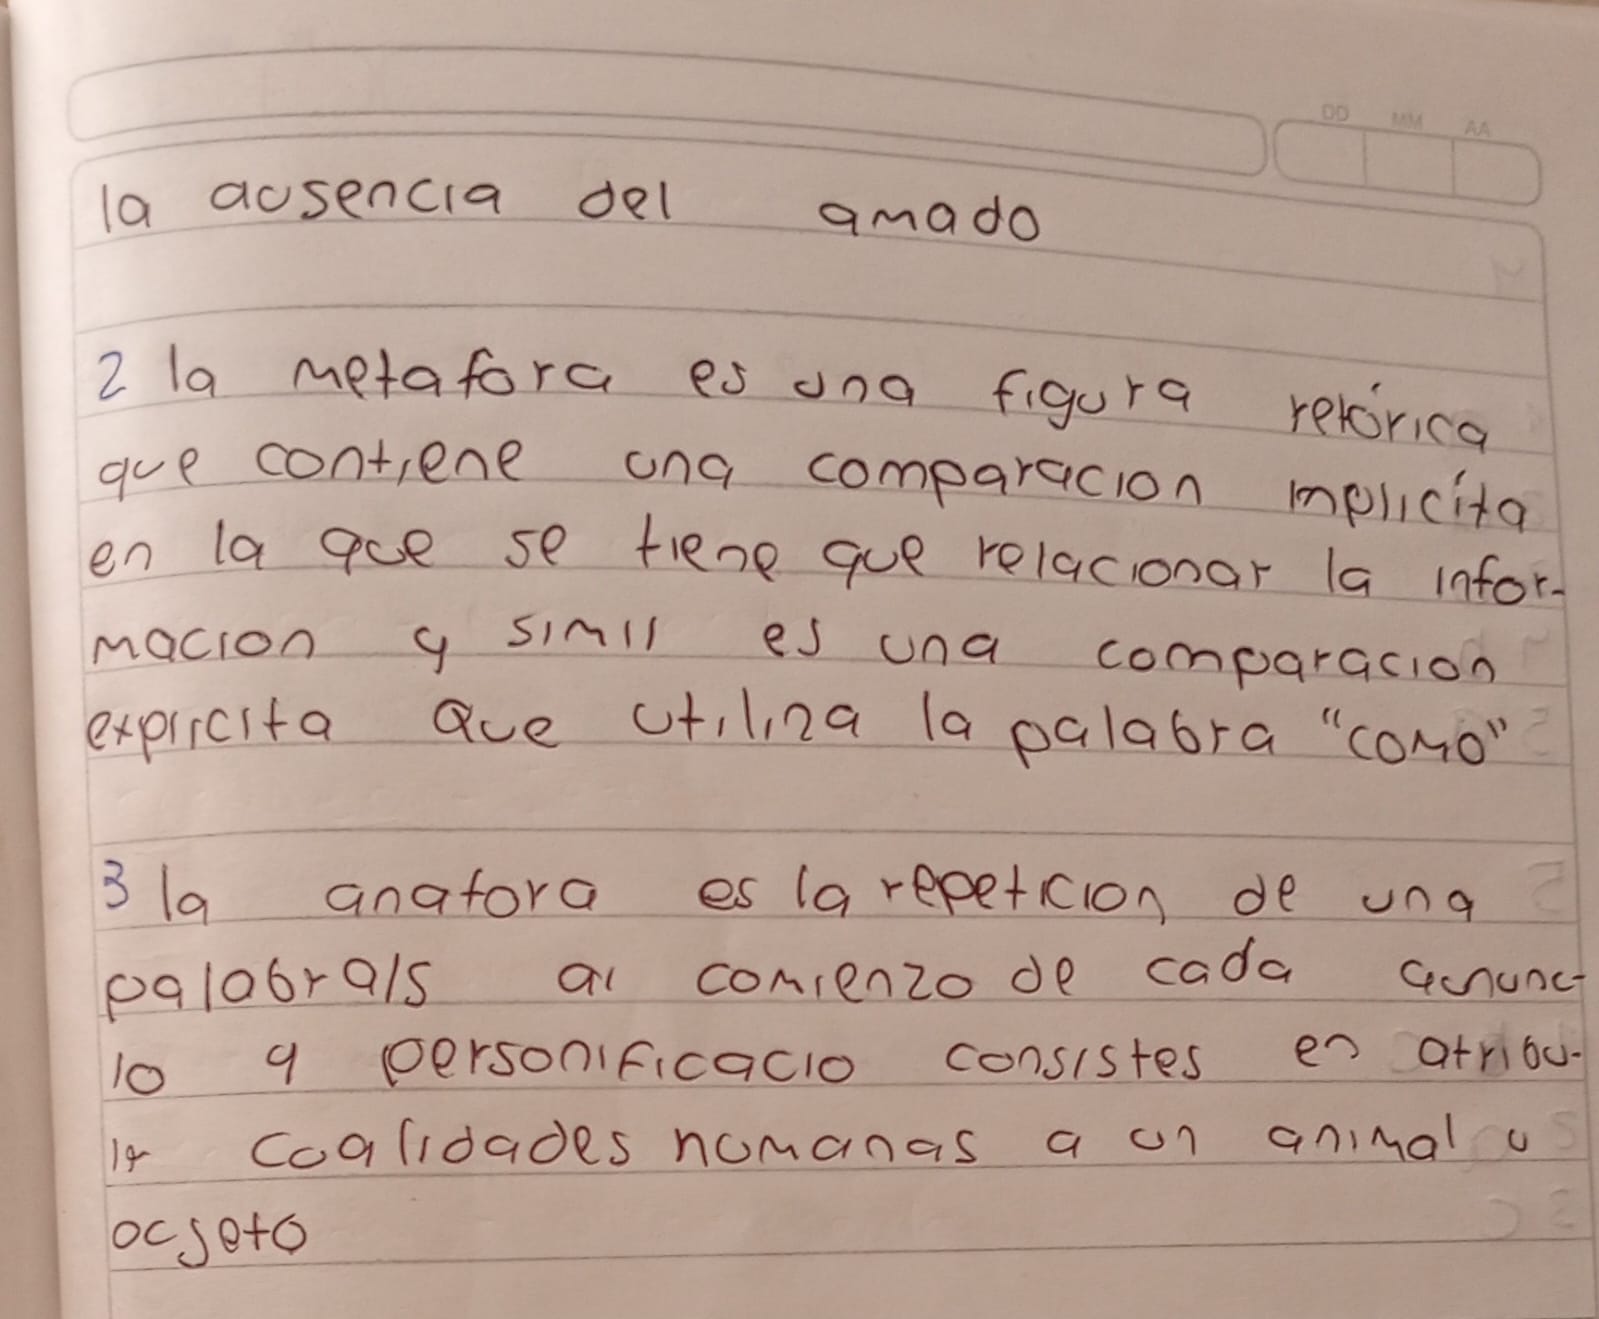 DD MM AA
la ausencia del amado
2 la metafora es una figura retórica
que contiene una comparacion implícita
en la que se tiene que relacionar la infor-
macion y simil es una comparacion
explicita Que utiliza la palabra "como"
3 la anafora es la repeticion de una
palabra/s al comienzo de cada
io y personificacio consistes en atribu-
ir cualidades humanas a un animal u